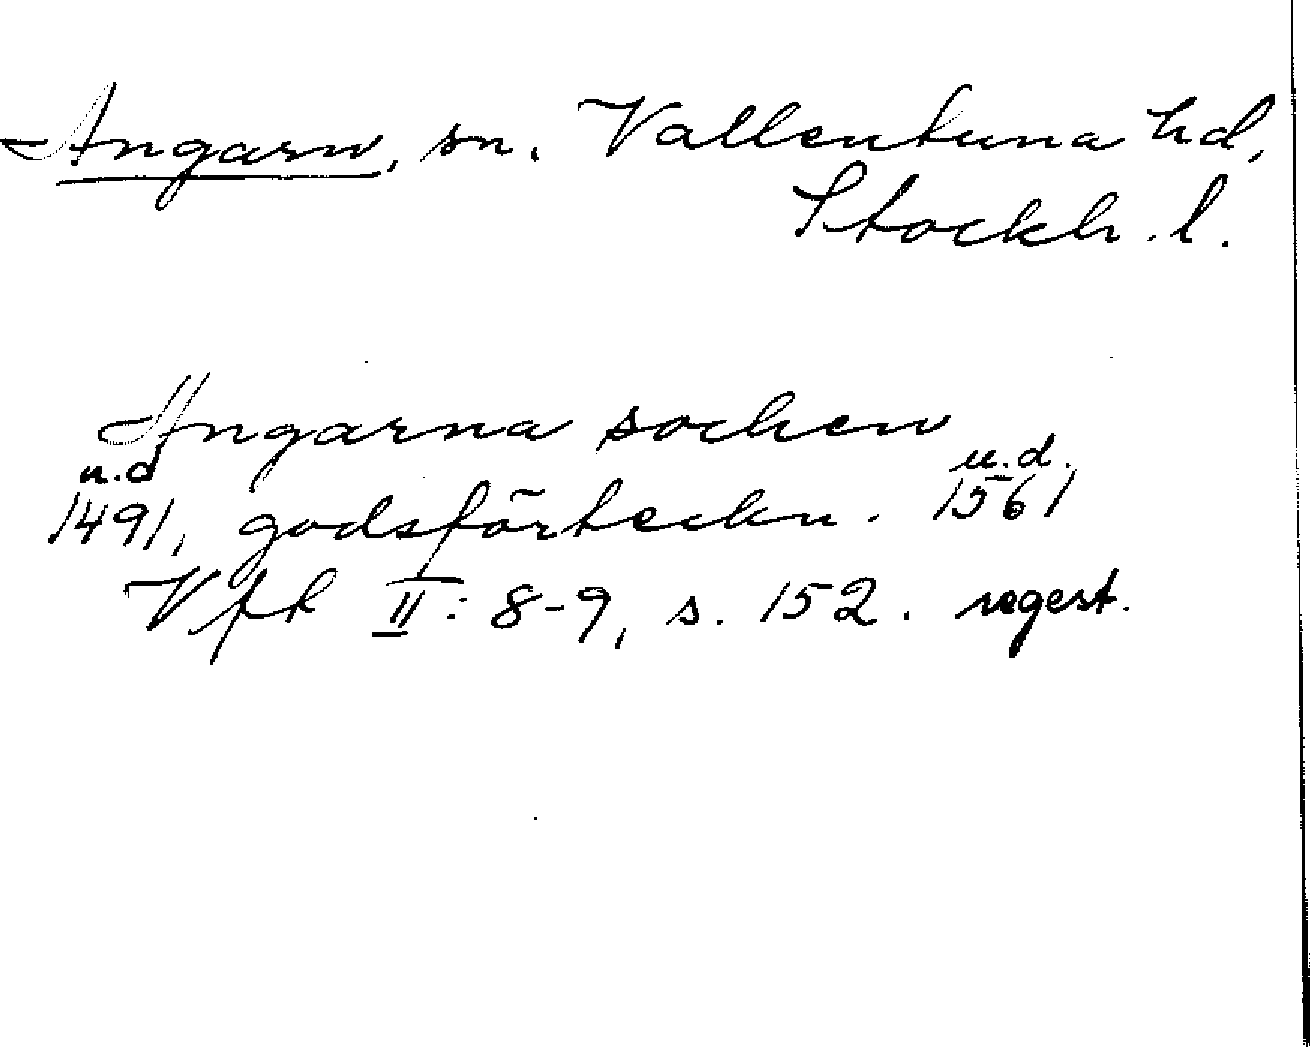 Angarn, sn. Vallentuna hd,
Stockh. l.
Angarna sochen
u.d u.d.
1491, godsförteckn. 1561
Vfk II: 8-9, s. 152. regest.